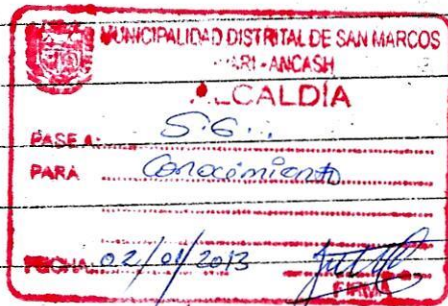 MUNICIPALIDAD DISTRITAL DE SAN MARCOS
HUARI - ANCASH
ALCALDÍA
PASE A: S.G...
PARA Conocimiento
FECHA: 02/01/2013
FIRMA